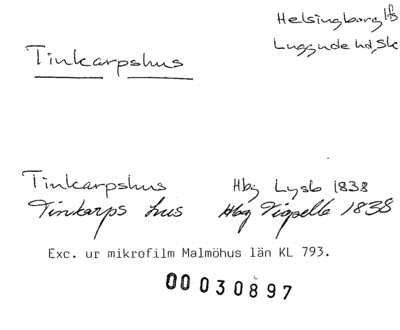 Tinkarpshus
Helsingborg lfs
Luggude hd, Sk
Tinkarpshus Hbg Lysb 1838
Tinkarps hus Hbg Vigselb 1838
Exc. ur mikrofilm Malmöhus län KL 793.
00030897